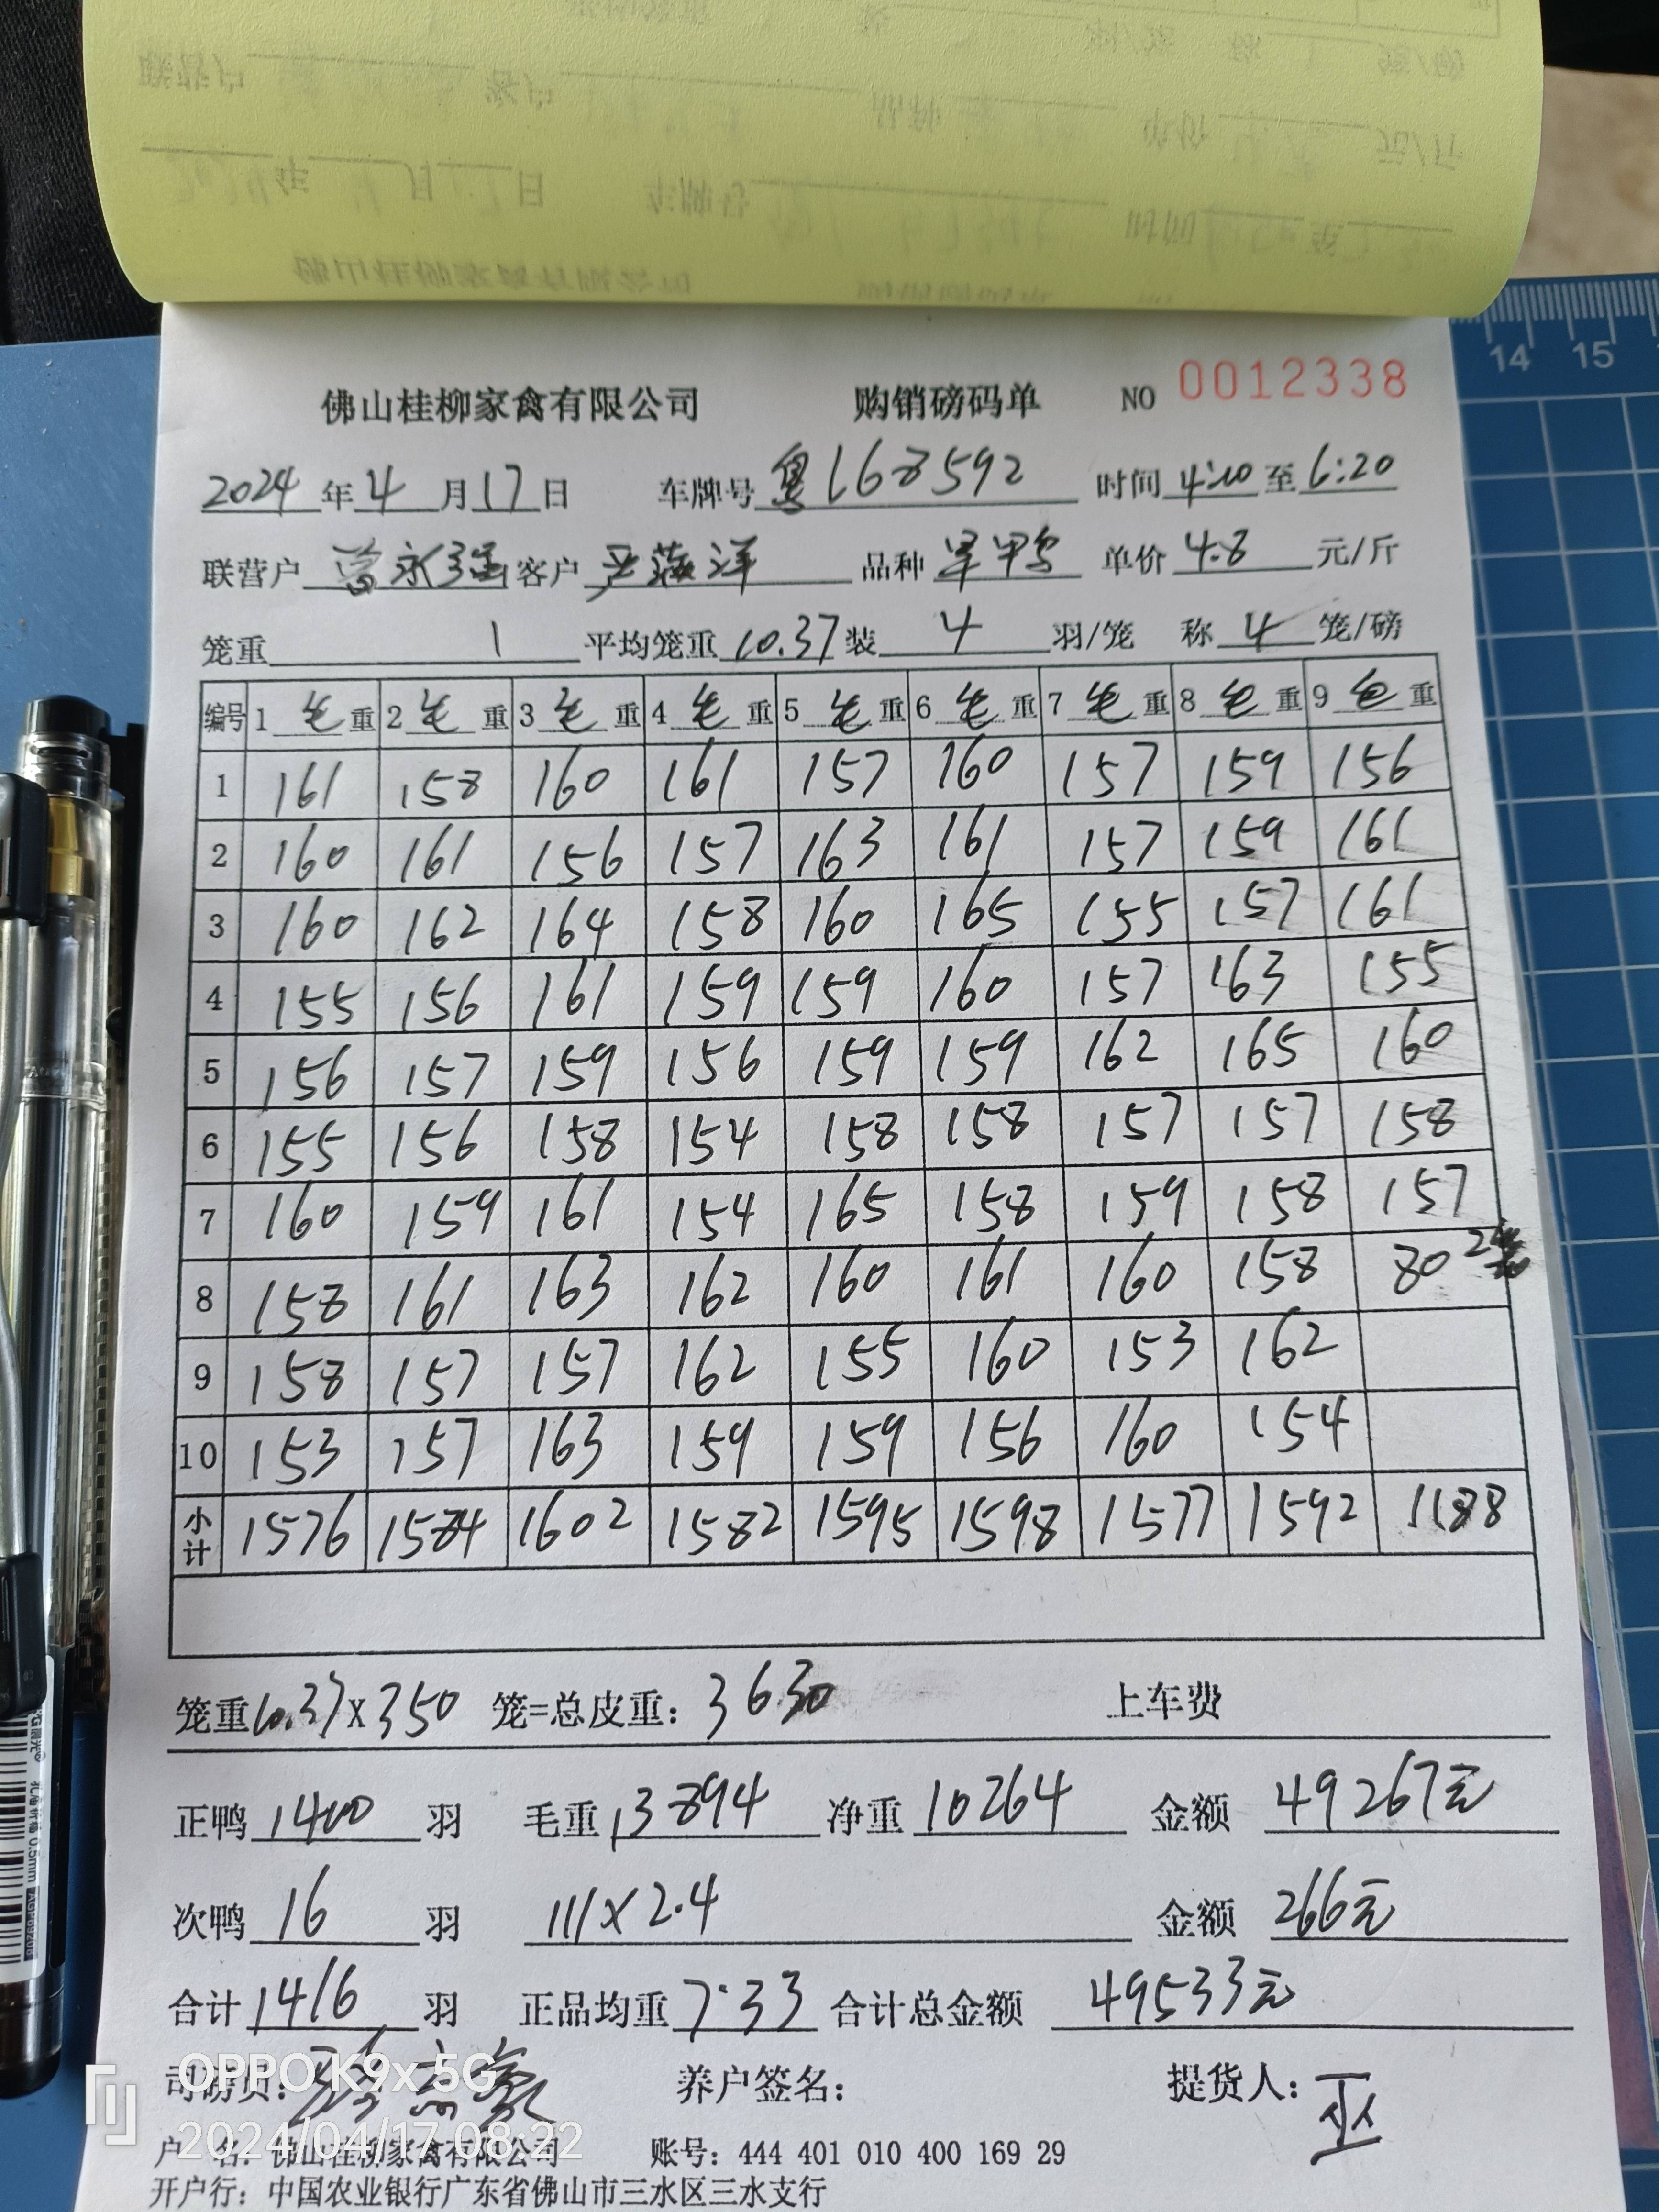 佛山桂柳家禽有限公司 购销磅码单 NO 0012338
2024年4月17日 车牌号 粤L68592 时间 4:10 至 6:20
联营户 曾永强 客户 海洋 品种 单价 4.8 元/斤
笼重 1 平均笼重 10.37 装 4 羽/笼 称 4 笼/磅
编号 1 毛重 2 毛重 3 毛重 4 毛重 5 毛重 6 毛重 7 毛重 8 毛重 9 毛重
1 161 158 160 161 157 160 157 159 156
2 160 161 156 157 163 161 157 159 161
3 160 162 164 158 160 165 155 157 161
4 155 156 161 159 159 160 157 163 155
5 156 157 159 156 159 159 162 165 160
6 155 156 158 154 158 158 157 157 158
7 160 159 161 154 165 158 159 158 157
8 158 161 163 162 160 161 160 158 80 2笼
9 158 157 157 162 155 160 153 162
10 153 157 163 159 159 156 160 154
小计 1576 1584 1602 1582 1595 1598 1577 1592 1188
笼重 10.37 X 350 笼=总皮重: 3630 上车费
正鸭 1400 羽 毛重 13894 净重 10264 金额 49267元
次鸭 16 羽 111×2.4 金额 266元
合计 1416 羽 正品均重 7.33 合计总金额 49533元
司磅员: 养户签名: 提货人: 巫
OPPO K9x 5G
2024/04/17 08:22
户 名: 佛山桂柳家禽有限公司 账号: 444 401 010 400 169 29
开户行: 中国农业银行广东省佛山市三水区三水支行